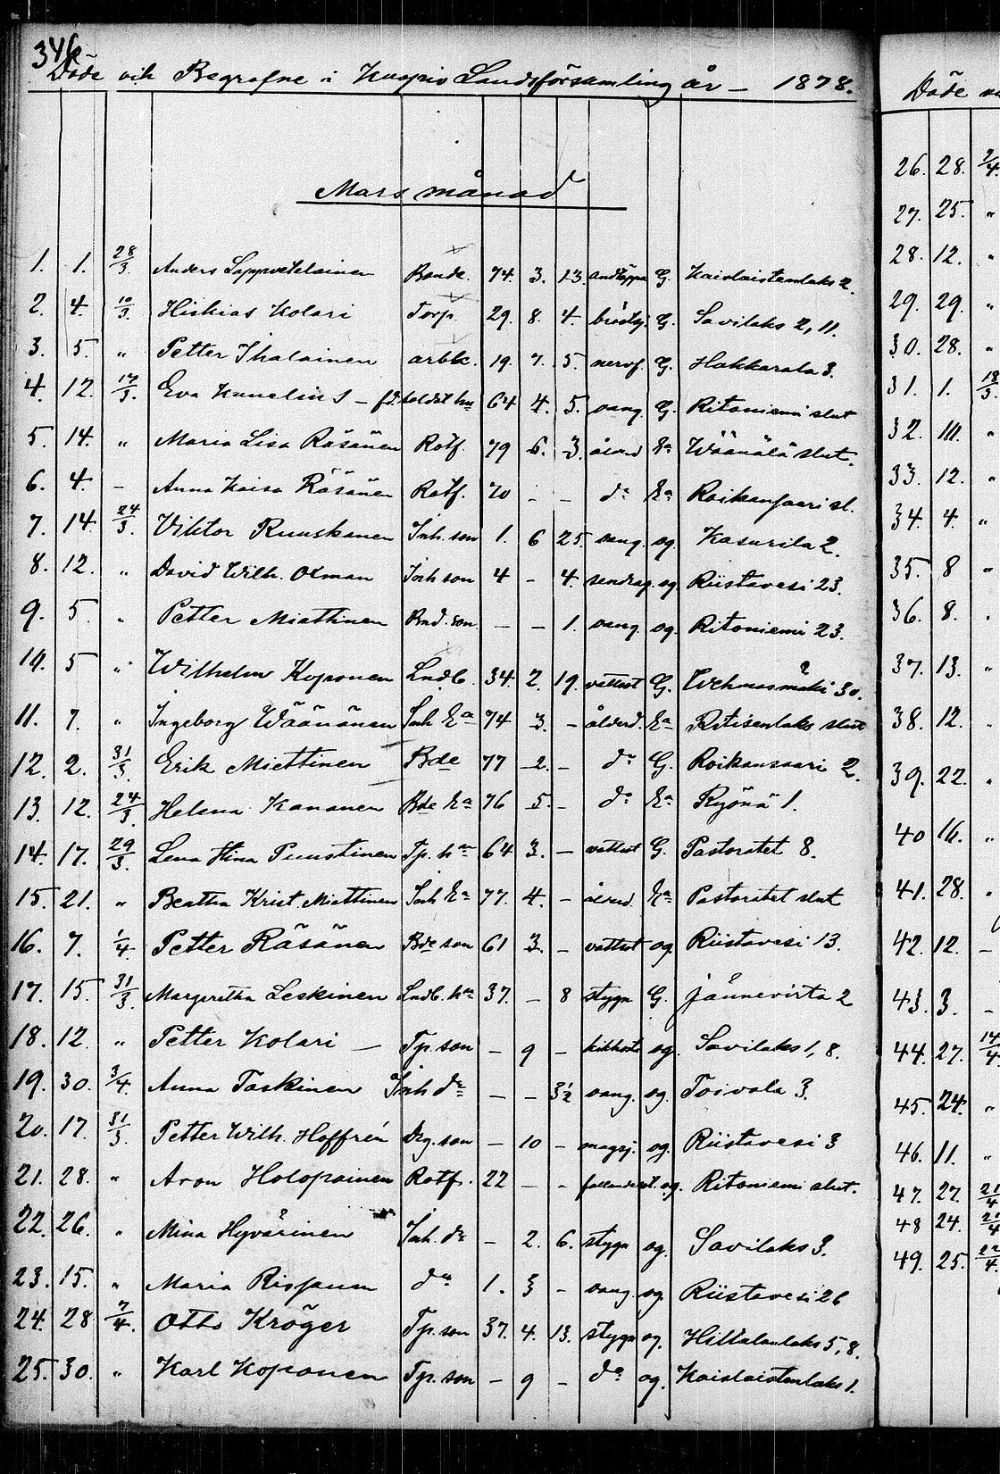 346
Döde och Begrafne i Kuopio Landsförsamling år – 1878.
Mars månad
1. 1. 28/3. Anders Lappvetelainen Bonde. 74. 3. 13. andtäppa G. Kaislaistenlaks 2.
2. 4. 10/3. Hiskias Kolari Torp. 29. 8. 4. bröstsj. G. Savilaks 2, 11.
3. 5. " Petter Ihalainen arbk. 19. 7. 5. nervf. G. Hakkarala 3.
4. 12. 17/3. Eva – fd. soldat hu 64 4. 5. oang. G. Ritoniemi slut
5. 14. " Maria Lisa Räsänen Rotf. 79 6. 3. ålerd Ea Wäänälä slut.
6. 4. – Anna Kaisa Räsänen Rotf. 70 - - do Ea Roikansaari sl.
7. 14. 24/3. Viktor Ruuskanen Inh. son 1. 6 25. oang. og. Kasurila 2.
8. 12. " David Wilh. Oxman Inh son 4 – 4. og. Riistavesi 23.
9. 5. " Petter Miettinen Bnd. son – – 1. oang. og. Ritoniemi 23.
10. 5 " Wilhelm Koponen Lndb. 34. 2. 19. vattust G. Wehmasmäki 30.
11. 7. " Ingeborg Wäänänen Inh Ea 74 3. – ålderd. Ea Ritisenlaks slut
12. 2. 31/3 Erik Miettinen Bde 77 2. – do G. Roikansaari 2.
13. 12. 24/3. Helena Kananen Bde Ea 76 5. – do Ea Ryönä 1.
14. 17. 29/3. Lena Stina Puustinen Tp. hu 64 3. – vattust G. Pastoratet 8.
15. 21. " Beatha Krist. Miettinen Inh Ea 77. 4. – ålerd. Ea Pastoratet slut
16. 7. 1/4 Petter Räsänen Bde son 61 3. – vattust og. Riistavesi 13.
17. 15. 31/3. Margeretha Leskinen Lndb. hu 37. – 8 stygn G. Jännevirta 2
18. 12. " Petter Kolari – Tp. son – 9 – kikhosta og. Savilaks 1, 8.
19. 30. 3/4. Anna Taskinen Inh dr – – 3½ oang. og. Toivala 3.
20. 17. 31/3 Petter Wilh. Hoffrén Drg. son – 10 – magsj. og. Riistavesi 3
21. 28. " Aron Holopainen Rotf. 22 – – fallandesot. og. Ritoniemi slut.
22. 26. " Mina Hyvärinen Inh. dr – 2. 6. stygn og. Savilaks 3.
23. 15. " Maria Rissanen do 1. 3 – oang. og Riistavesi 26
24. 28 7/4. Otto Kröger Tp. son 37. 4. 13. stygn og. Hiltulanlaks 5, 8.
25. 30. " Karl Koponen Tp. son – 9 – do og. Kaislaistenlaks 1.
Döde
26. 28. 7/4.
27. 25. "
28. 12. "
29. 29. "
30. 28. "
31. 1. 13/3.
32. 10. "
33. 12. "
34. 4. "
35. 8 "
36. 8. "
37. 13. "
38. 12. "
39. 22. "
40 16. "
41. 28. "
42. 12. –
43. 3. –
44. 27. 14/4
45. 24. "
46. 11. "
47. 27. 21/4
48 24. 21/4
49. 25. 22/4.